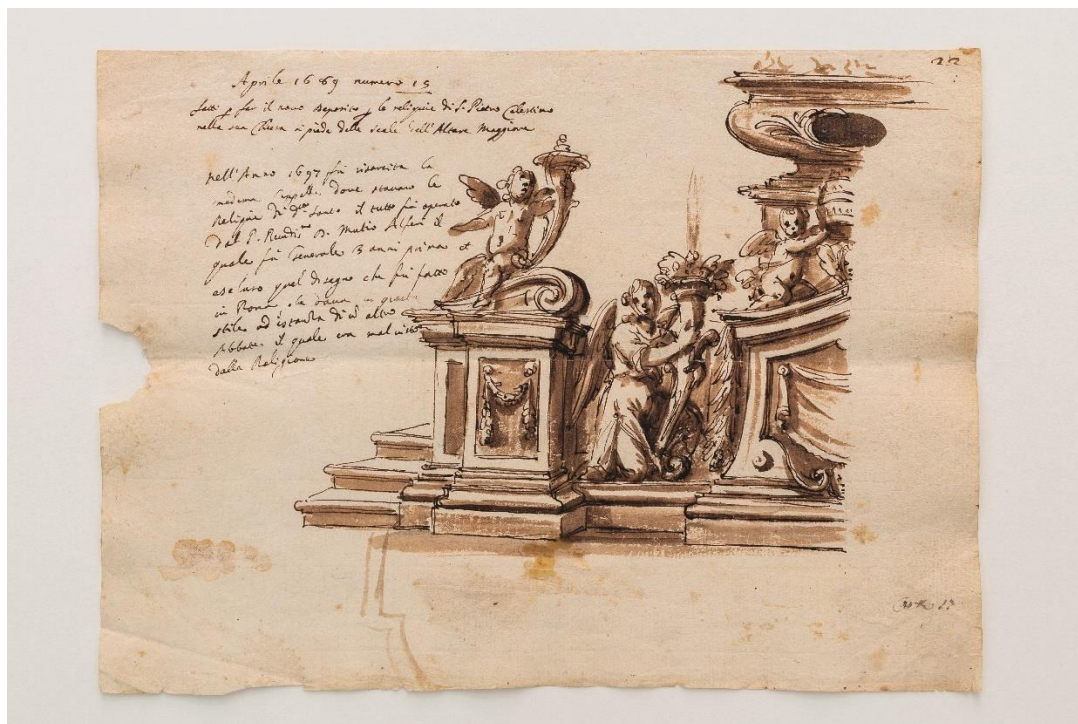 Aprile 1689 numero 15
fatti p far il novo Deposito p le reliquie di S. Pietro Celestino
nella sua Chiesa a piedi delle scale dell'Altare Maggiore
22
nell'Anno 1697 fu risarcita la
medema Cappella dove stavano le
Reliquie di d.to Santo il tutto fu operato
dal P. D. Mutio Alferi il
quale fu Generale 3 anni prima et
escluso quel disegno che fu fatto
in Roma che dava in
stile ad istanza di altro
Abbate il quale era mal visto
dalla Religione